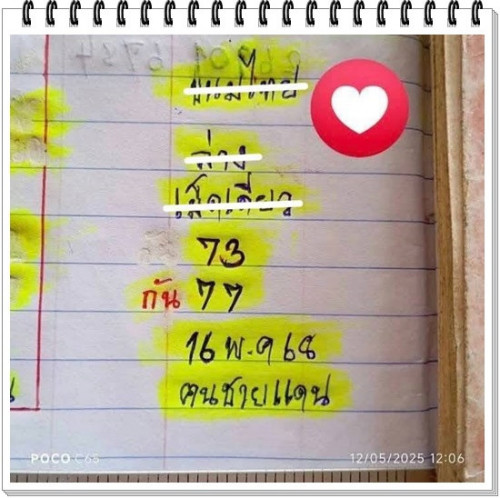 ขุนแม่ไทย
ล่าง
เม็ดเดียว
73
กัน 77
16 พ.ค 68
ฅนชายแดน
POCO C65
12/05/2025 12:06